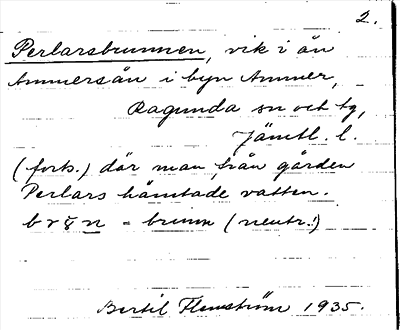 2.
Perlarsbrunnen, vik i ån
Ammersån i byn Ammer,
Ragunda sn och tg,
Jämtl. l.
(forts.) där man från gården
Perlars hämtade vatten.
= brunn (neutr.!)
Bertil Flemström 1935.